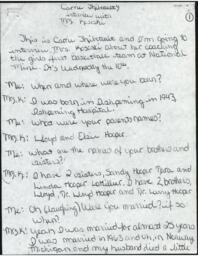 Carrie Thibeault
interview with
Mrs. Koski
1
This is Carrie Thibeault and I'm going to
interview Mrs. Koski about her coaching
the girls first basketball team of National
Mine. It's Wednesday the 10th.
Me: When and where were you born?
Mrs. K: I was born in Ishpeming in 1943,
Ishpeming Hospital.
Me: What were your parents names?
Mrs. K: Lloyd and Elsie Hooper.
Me: What are the names of your brothers and
sisters?
Mrs. K: I have 2 sisters, Sandy Hooper and
Linda Hooper. I have 2 brothers,
Lloyd Jr. Hooper and Hooper
Me: Oh (laughing) Were you married? if so
when?
Mrs. K: Yeah I was married for almost 25 years
I was married in 1963 and uh, in Norway
Michigan and my husband died a little